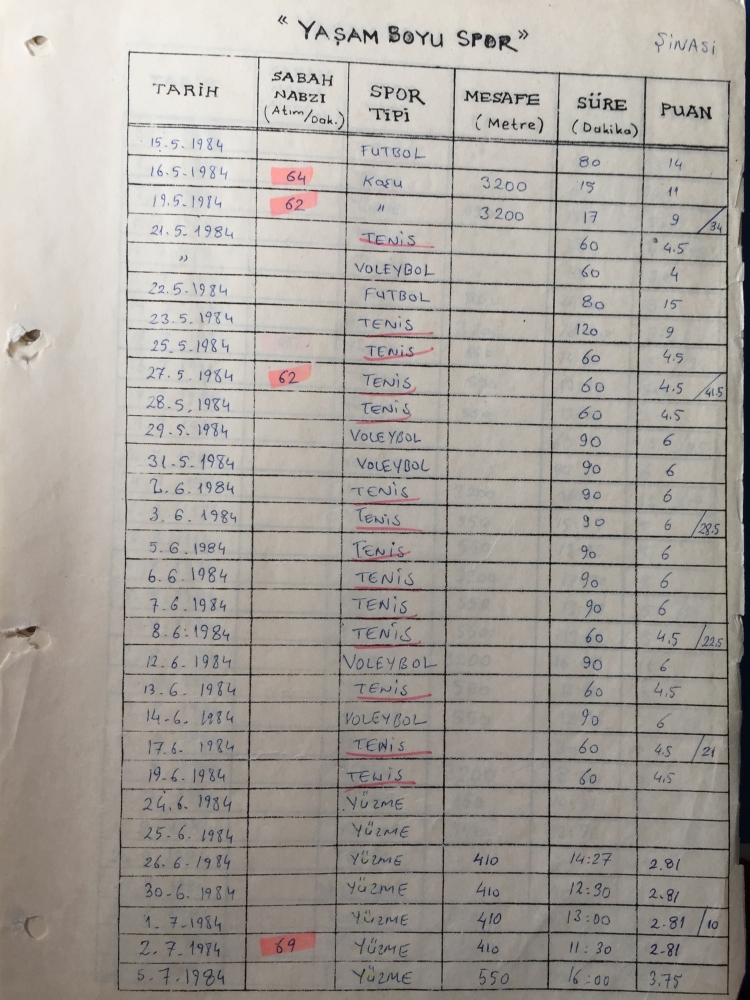 "YAŞAM BOYU SPOR"
ŞİNASİ
TARİH SABAH NABZI (Atım/Dak.) SPOR TİPİ MESAFE (Metre) SÜRE (Dakika) PUAN
15.5.1984 FUTBOL 80 14
16.5.1984 64 Koşu 3200 15 11
19.5.1984 62 " 3200 17 9 /34
21.5.1984 TENİS 60 4.5
" VOLEYBOL 60 4
22.5.1984 FUTBOL 80 15
23.5.1984 TENİS 120 9
25.5.1984 TENİS 60 4.5
27.5.1984 62 TENİS 60 4.5 /41.5
28.5.1984 TENİS 60 4.5
29.5.1984 VOLEYBOL 90 6
31.5.1984 VOLEYBOL 90 6
2.6.1984 TENİS 90 6
3.6.1984 TENİS 90 6 /28.5
5.6.1984 TENİS 90 6
6.6.1984 TENİS 90 6
7.6.1984 TENİS 90 6
8.6.1984 TENİS 60 4.5 /22.5
12.6.1984 VOLEYBOL 90 6
13.6.1984 TENİS 60 4.5
14.6.1984 VOLEYBOL 90 6
17.6.1984 TENİS 60 4.5 /21
19.6.1984 TENİS 60 4.5
24.6.1984 YÜZME
25.6.1984 YÜZME
26.6.1984 YÜZME 410 14:27 2.81
30.6.1984 YÜZME 410 12:30 2.81
1.7.1984 YÜZME 410 13:00 2.81 /10
2.7.1984 69 YÜZME 410 11:30 2.81
5.7.1984 YÜZME 550 16:00 3.75